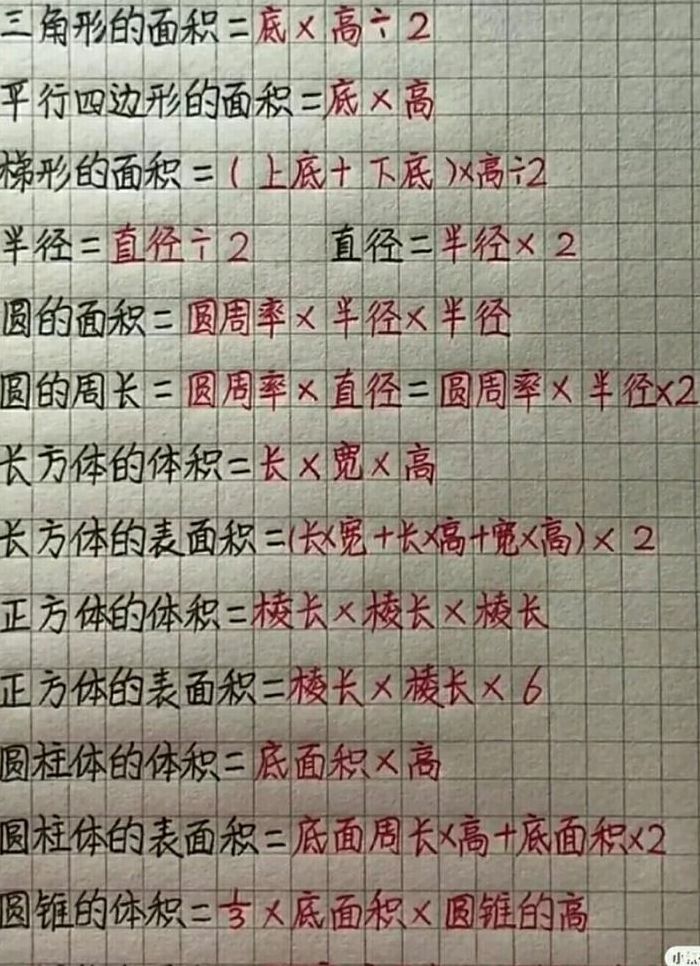 三角形的面积=底×高÷2
平行四边形的面积=底×高
梯形的面积=(上底+下底)×高÷2
半径=直径÷2 直径=半径×2
圆的面积=圆周率×半径×半径
圆的周长=圆周率×直径=圆周率×半径×2
长方体的体积=长×宽×高
长方体的表面积=(长×宽+长×高+宽×高)×2
正方体的体积=棱长×棱长×棱长
正方体的表面积=棱长×棱长×6
圆柱体的体积=底面积×高
圆柱体的表面积=底面周长×高+底面积×2
圆锥的体积=1/3×底面积×圆锥的高